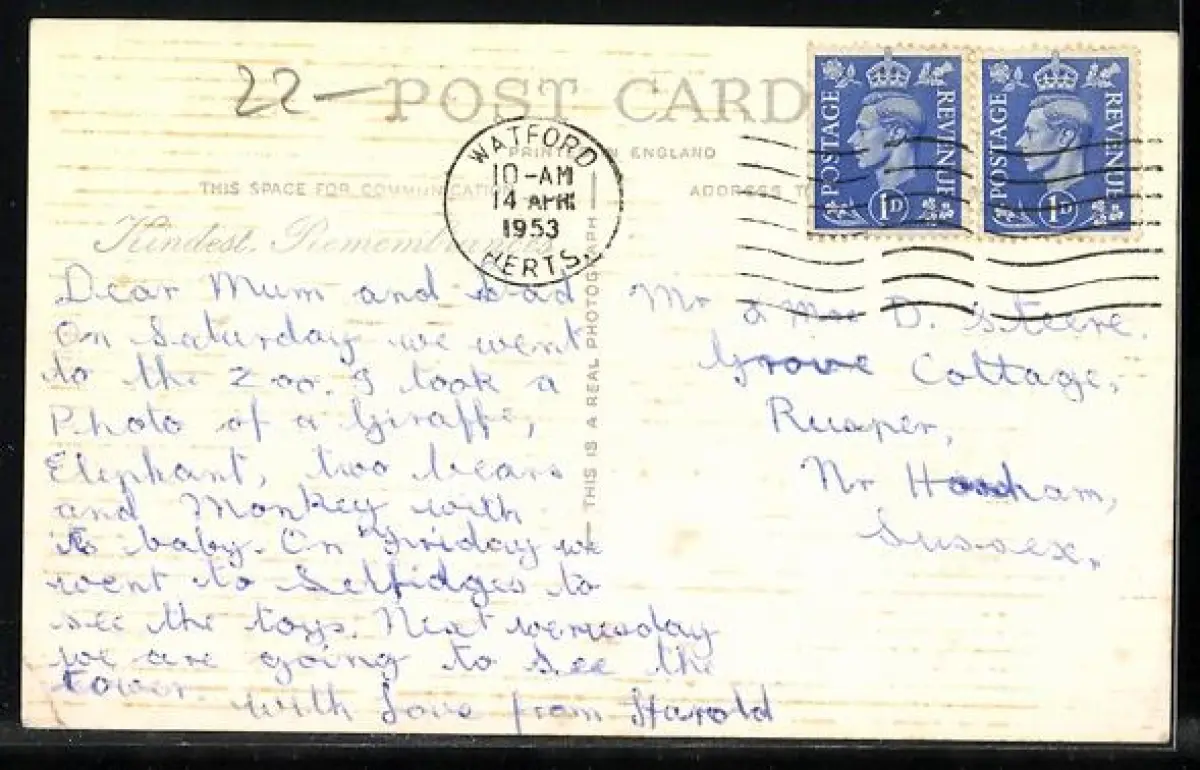 22 —
POST CARD
PRINTED IN ENGLAND
THIS SPACE FOR COMMUNICATION
ADDRESS
Kindest Remembrances
WATFORD
10-AM
14 APR
1953
HERTS.
POSTAGE REVENUE
1D
POSTAGE REVENUE
1D
THIS IS A REAL PHOTOGRAPH
Dear Mum and Dad
On Saturday we went
to the Zoo. I took a
Photo of a Giraffe,
Elephant, two bears
and Monkey with
its baby. On Friday we
went to Selfidges to
see the toys. Next wenesday
we are going to see the
tower.
with Love from Harold
Mr & Mrs D. Steere.
Grove Cottage,
Rusper,
Nr Horsham,
Sussex.